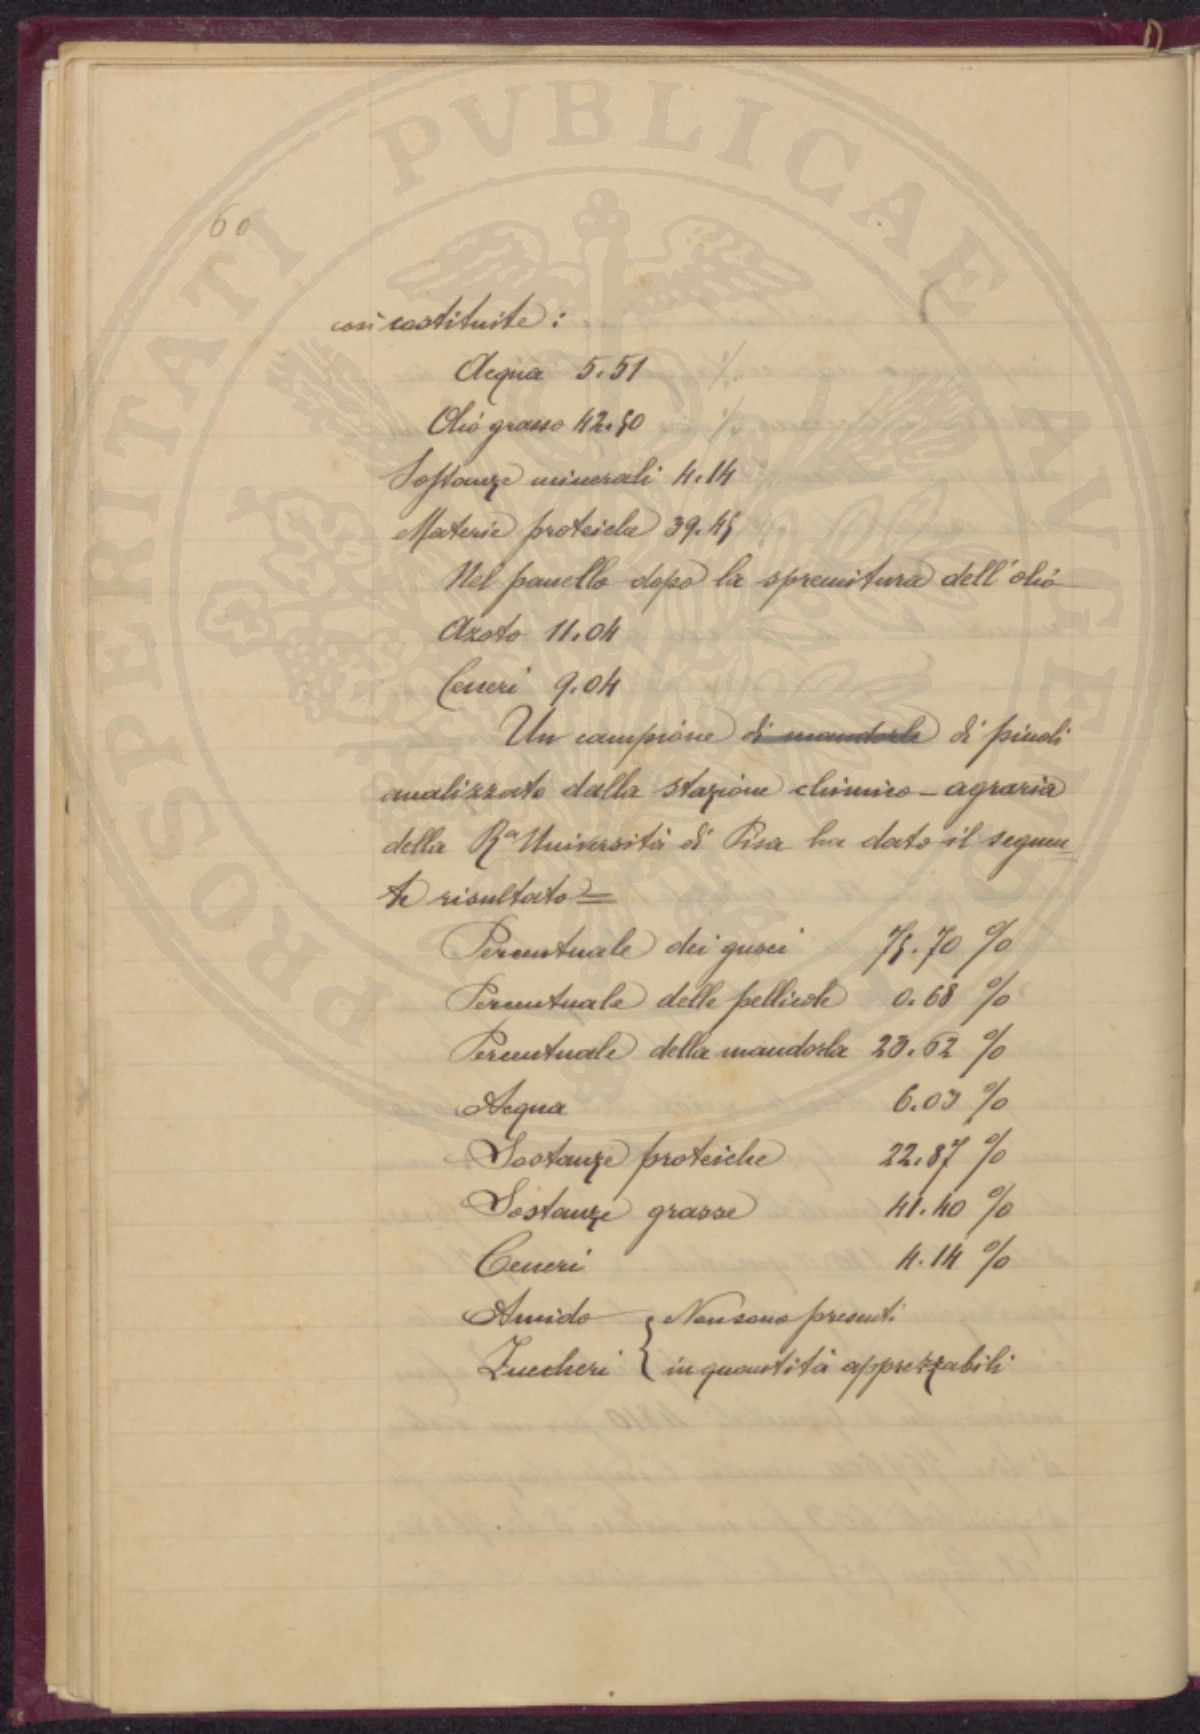 60
così costituite:
Acqua 5.51
Olio grasso 42.50
Sostanze minerali 4.14
Materie proteiche 39.45
Nel panello dopo la spremitura dell'olio
Azoto 11.04
Ceneri 9.04
Un campione di mandorle di pinoli
analizzato dalla stazione chimico-agraria
della Rª Università di Pisa ha dato il seguen=
te risultato=
Percentuale dei gusci 75.70 %
Percentuale delle pellicole 0.68 %
Percentuale della mandorla 23.62 %
Acqua 6.03 %
Sostanze proteiche 22.87 %
Sostanze grasse 41.40 %
Ceneri 4.14 %
Amido { Non sono presenti
Zuccheri { in quantità apprezzabili
PROSPERITATI PVBLICAE AVGENDAE